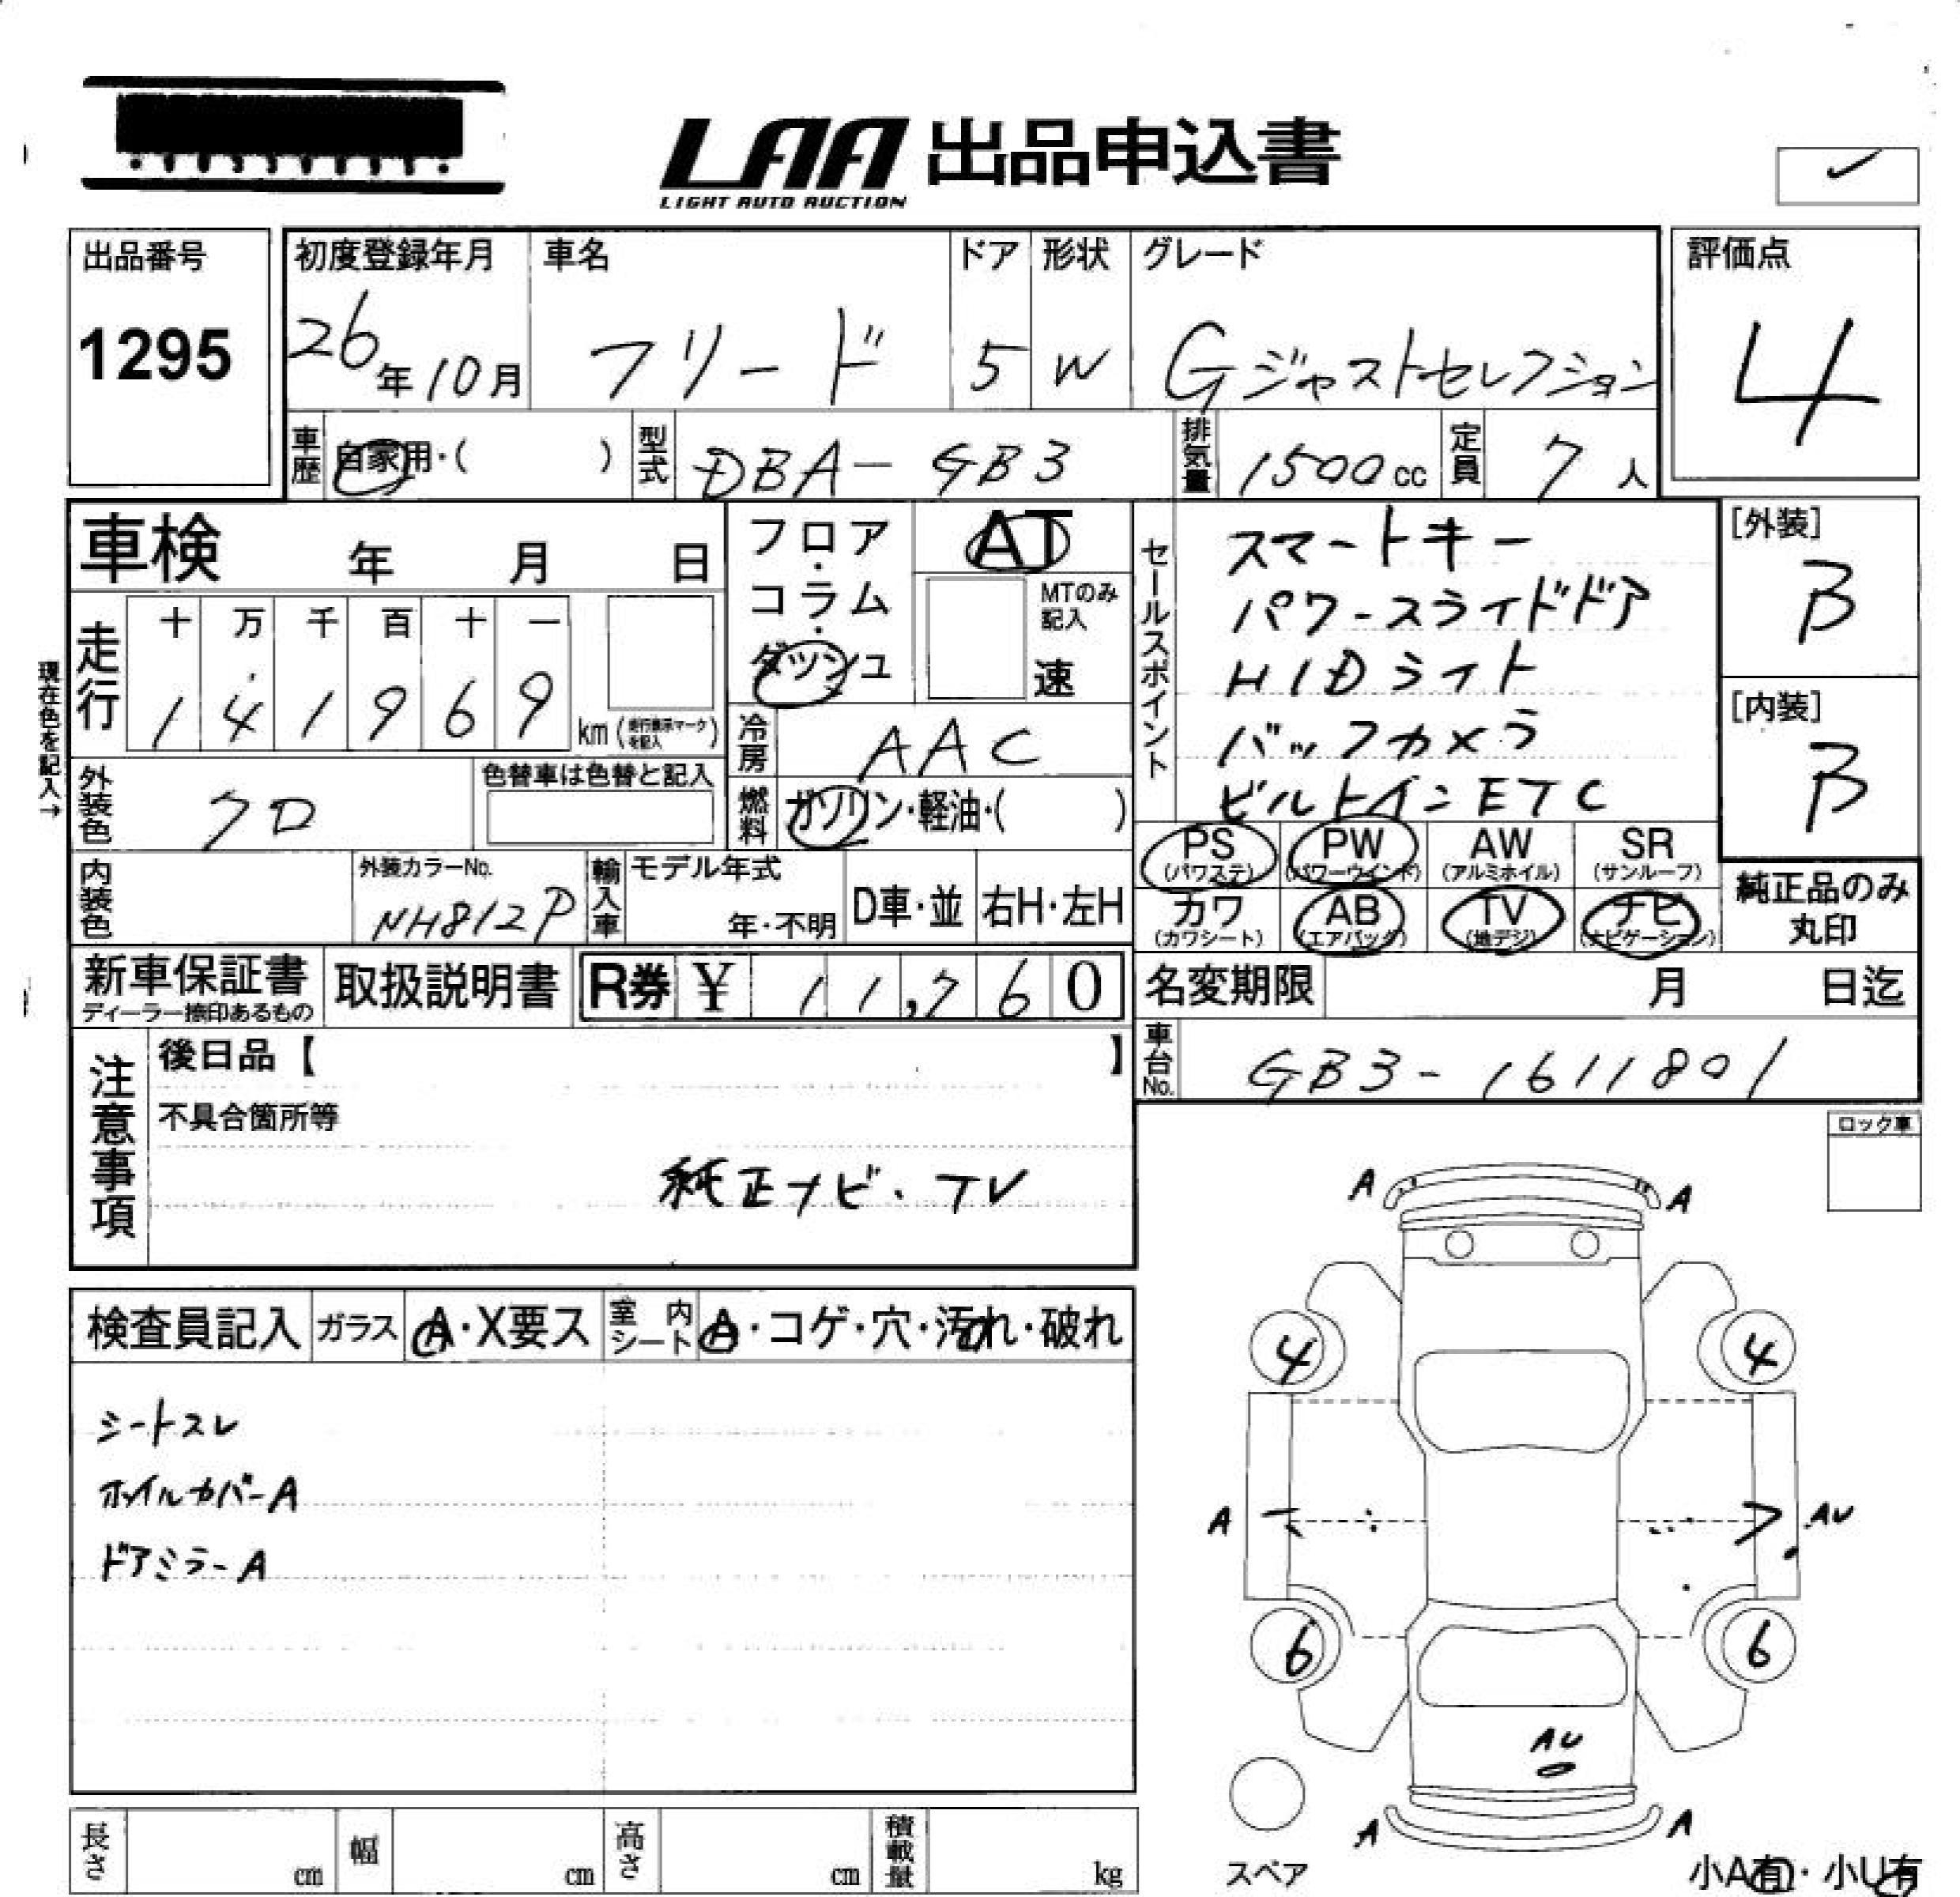 LAA 出品申込書
LIGHT AUTO AUCTION
出品番号
1295
初度登録年月
26年10月
車名
フリード
ドア
5
形状
W
グレード
Gジャストセレクション
評価点
4
車歴
自家用・( )
型式
DBA-GB3
排気量
1500cc
定員
7人
車検 年 月 日
現在色を記入→
走行
十 万 千 百 十 一
1 4 1 9 6 9
km (走行表示マークを記入)
フロア・コラム・ダッシュ
AT
MTのみ記入
速
冷房
AAC
燃料
ガソリン・軽油・( )
外装色
クロ
色替車は色替と記入
内装色
外装カラーNo.
NH812P
輸入車
モデル年式
年・不明
D車・並
右H・左H
セールスポイント
スマートキー
パワースライドドア
HIDライト
バックカメラ
ビルトインETC
[外装]
B
[内装]
B
PS (パワステ)
PW (パワーウインド)
AW (アルミホイル)
SR (サンルーフ)
カワ (カワシート)
AB (エアバッグ)
TV (地デジ)
ナビ (ナビゲーション)
純正品のみ丸印
新車保証書
ディーラー捺印あるもの
取扱説明書
R券 ¥ 11,760
名変期限 月 日迄
車台No.
GB3-1611801
注意事項
後日品【 】
不具合箇所等
純正ナビ・TV
ロック車
検査員記入
ガラス
A・X要ス
室内シート
A・コゲ・穴・汚れ・破れ
シートスレ
ホイルカバーA
ドアミラーA
A A
4 4
A AU
6 6
AU
A A
スペア
小A有・小U有
長さ cm
幅 cm
高さ cm
積載量 kg